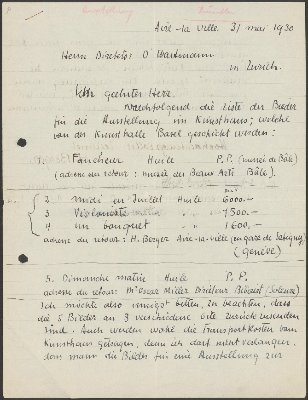 Aire-la-ville. 31 mai 1930
Herrn Direktor O Wartmann
in Zürich.
Sehr geehrter Herr.
Nachfolgend die Liste der Bilder
für die Ausstellung im Kunsthaus; welche
von der Kunsthalle Basel geschickt werden:
1. Faucheur Huile P.P. (musée de Bâle)
(adresse du retour: musée des Beaux Arts Bâle).
2. midi en Juillet Huile 6000.-
3 Violoniste 7500.-
4 un bouquet 1600.-
adresse du retour: H. Berger Aire-la-ville (en gare de Satigny)
(Genève)
5. Dimanche matin Huile P.P.
adresse du retour: Mr Oscar Miller Directeur Biberist (Soleure)
Ich möchte also innigst bitten, zu beachten, dass
die 5 Bilder an 3 verschiedene Orte zurückzusenden
sind. Auch werden wohl die Transportkosten vom
Kunsthaus getragen, denn ich darf nicht verlangen,
dass man die Bilder für eine Ausstellung zur